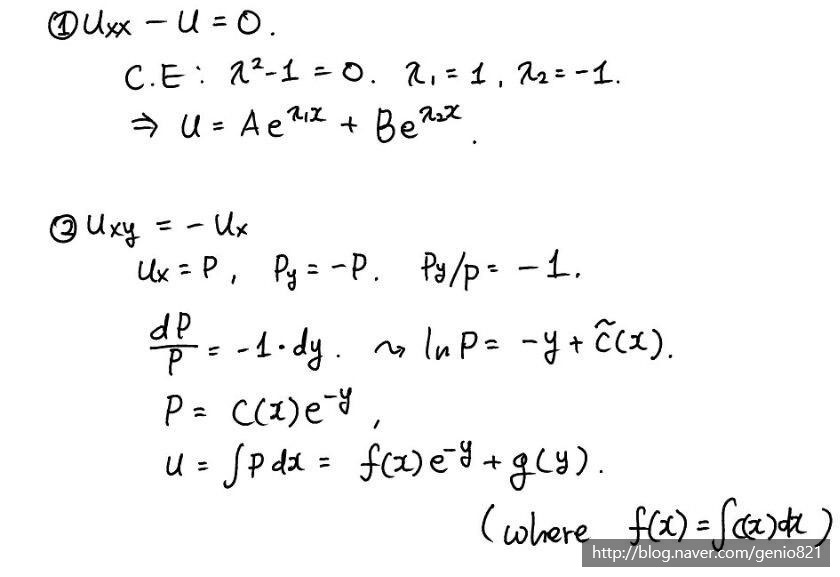 ① Uxx - U = 0.
C.E : λ²-1 = 0. λ₁ = 1, λ₂ = -1.
⇒ U = Ae^λ₁x + Be^λ₂x.
② Uxy = - Ux
Ux = P, Py = -P. Py/P = -1.
dP/P = -1·dy. ⤳ ln P = -y + c̃(x).
P = C(x)e^-y,
U = ∫P dx = f(x)e^-y + g(y).
(where f(x) = ∫C(x)dx)
http://blog.naver.com/genio821